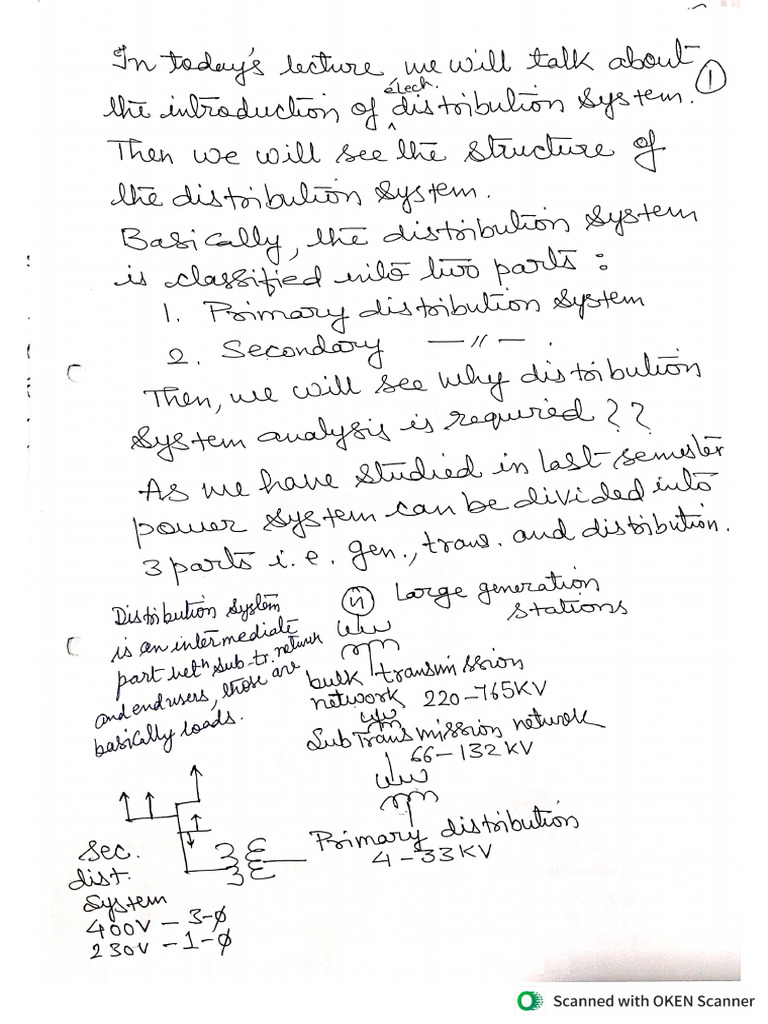 In today's lecture we will talk about
the introduction of elect. distribution system. ①
Then we will see the structure of
the distribution system.
Basically, the distribution system
is classified into two parts :
1. Primary distribution system
2. Secondary —〃— .
Then, we will see why distribution
system analysis is required ??
As we have studied in last semester
power system can be divided into
3 parts i.e. gen., trans. and distribution.
Large generation
stations
Distribution system
is an intermediate
part betn sub-tr. network
and end users, those are
basically loads.
bulk transmission
network 220-765KV
Sub Transmission network
66-132 KV
Primary distribution
4-33KV
Sec.
dist.
system
400V - 3-φ
230V - 1-φ
Scanned with OKEN Scanner